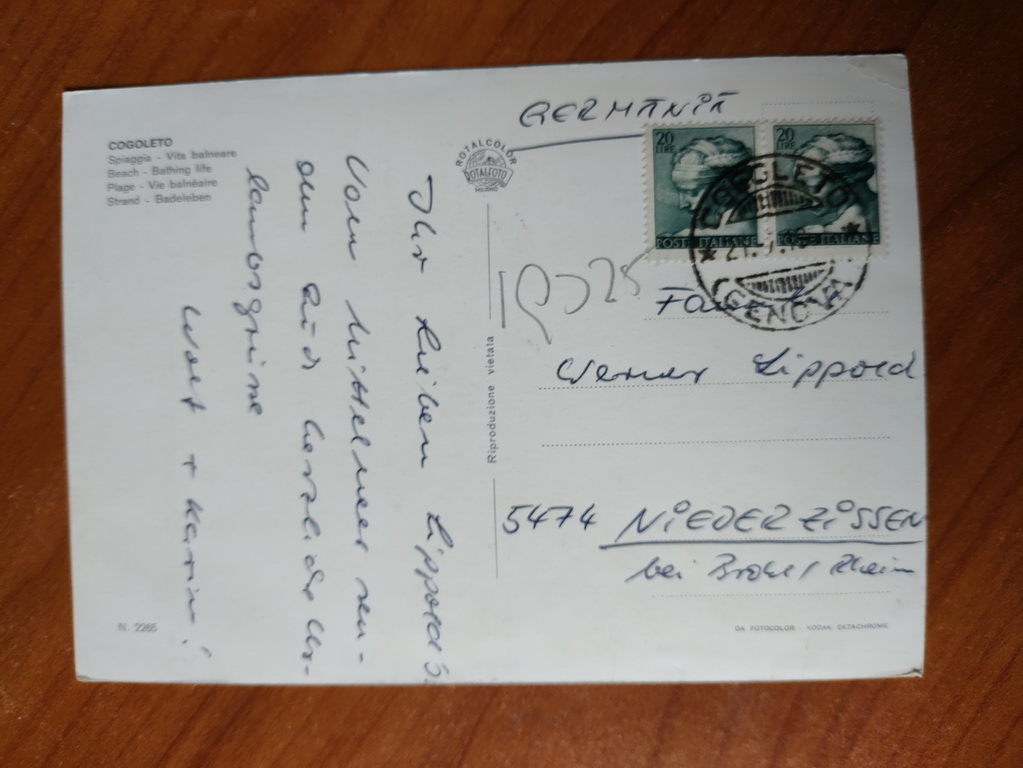 COGOLETO
Spiaggia - Vita balneare
Beach - Bathing life
Plage - Vie balnéaire
Strand - Badeleben
Ihr lieben Lippold's.
Vom Mittelmeer sen-
den Euch herzliche Ur-
laubsgrüsse
Wolf + Karin!
N. 2265
ROTALCOLOR
ROTALFOTO
MILANO
Riproduzione vietata
GERMANIA
20
LIRE
POSTE ITALIANE
20
LIRE
POSTE ITALIANE
COGOLETO
(GENOVA)
Werner Lippold
5474 NIEDERZISSEN
bei Brohl / Rhein
GA FOTOCOLOR - KODAK EKTACHROME